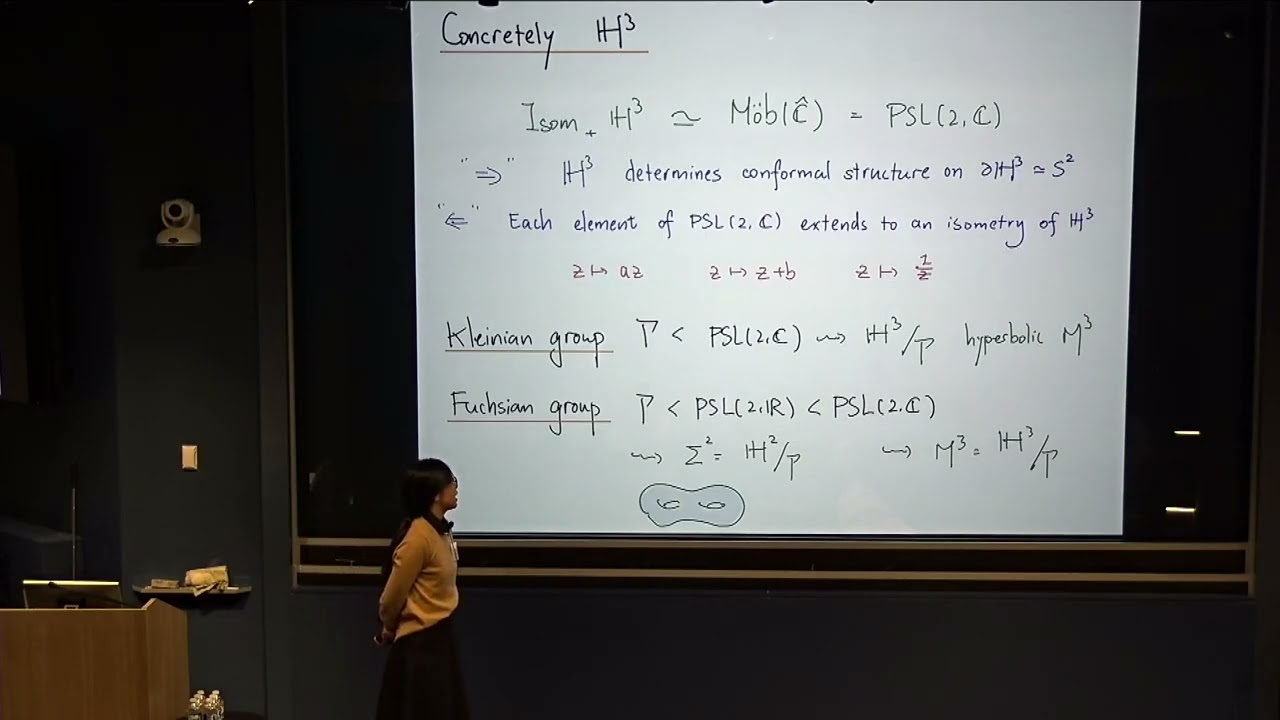 Concretely ℍ³
Isom₊ ℍ³ ≃ Möb(Ĉ) = PSL(2, ℂ)
"⇒" ℍ³ determines conformal structure on ∂ℍ³ ≃ S²
"⇐" Each element of PSL(2, ℂ) extends to an isometry of ℍ³
z ↦ az z ↦ z+b z ↦ 1/z
Kleinian group Γ < PSL(2, ℂ) ⇝ ℍ³/Γ hyperbolic M³
Fuchsian group Γ < PSL(2, ℝ) < PSL(2, ℂ)
⇝ Σ² = ℍ²/Γ ⇝ M³ = ℍ³/Γ